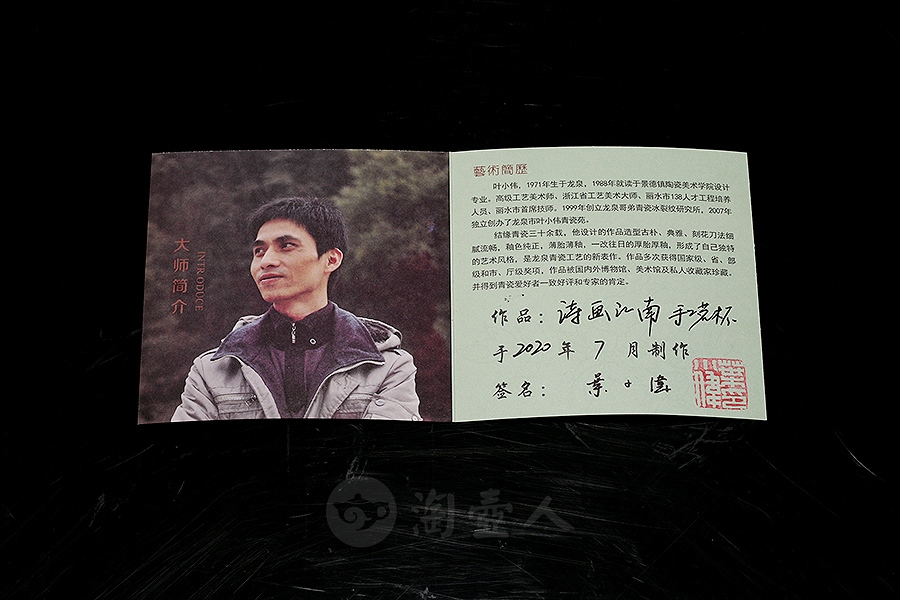 大师简介
INTRODUCE
藝術簡歷
叶小伟，1971年生于龙泉，1988年就读于景德镇陶瓷美术学院设计
专业。高级工艺美术师、浙江省工艺美术大师、丽水市138人才工程培养
人员、丽水市首席技师。1999年创立龙泉哥弟青瓷冰裂纹研究所，2007年
独立创办了龙泉市叶小伟青瓷苑。
结缘青瓷三十余载，他设计的作品造型古朴、典雅、刻花刀法细
腻流畅，釉色纯正，薄胎薄釉，一改往日的厚胎厚釉，形成了自己独特
的艺术风格，是龙泉青瓷工艺的新表作。作品多次获得国家级、省、部
级和市、厅级奖项，作品被国内外博物馆、美术馆及私人收藏家珍藏。
并得到青瓷爱好者一致好评和专家的肯定。
作品：诗画江南 手茗杯
于2020年 7 月制作
签名：葉小偉
淘壶人